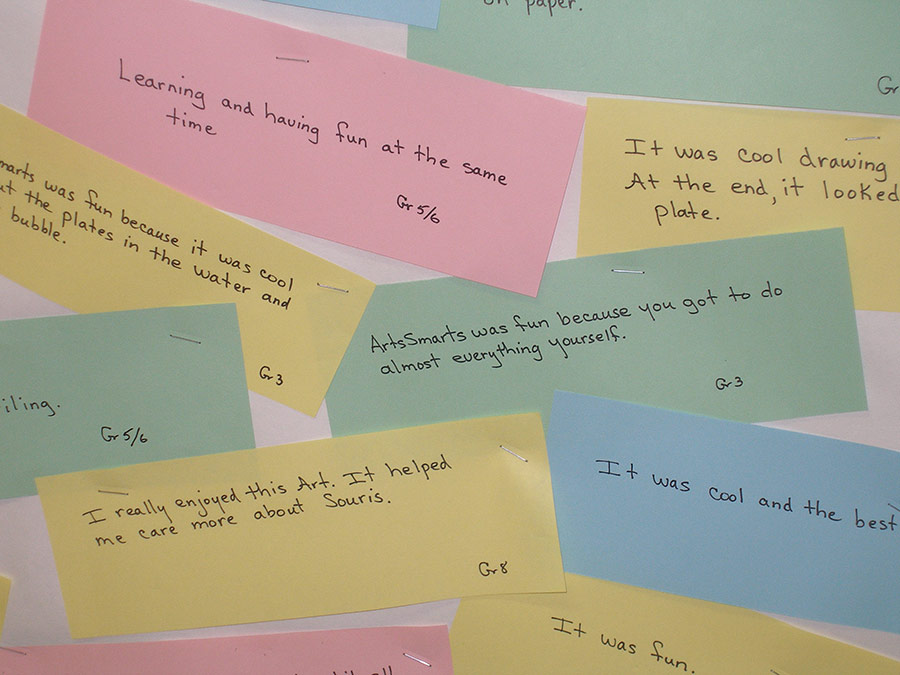 on paper.
Gr
Learning and having fun at the same
time
Gr 5/6
It was cool drawing
At the end, it looked
plate.
marts was fun because it was cool
the plates in the water and
bubble.
Gr 3
ArtsSmarts was fun because you got to do
almost everything yourself.
Gr 3
iling.
Gr 5/6
I really enjoyed this Art. It helped
me care more about Souris.
Gr 8
It was cool and the best
It was fun.